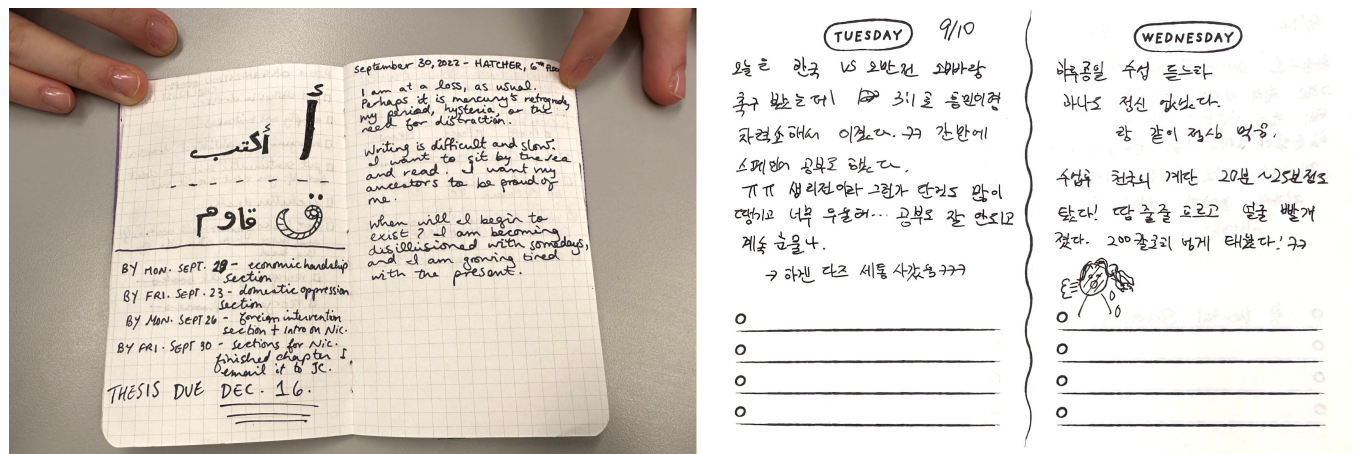 أ
أكتب
ق
قاوم
BY MON. SEPT. 20 - economic hardship
section
BY FRI. SEPT. 23 - domestic oppression
section
BY MON. SEPT 26 - foreign intervention
section + Intro on Nic.
BY FRI. SEPT 30 - sections for Nic.
finished chapter I,
email it to JC.
THESIS DUE DEC. 16.
September 30, 2022 - HATCHER, 6TH FLOOR
I am at a loss, as usual.
Perhaps it is mercury's retrograde,
my period, hysteria or the
need for distraction.
Writing is difficult and slow.
I want to sit by the sea
and read. I want my
ancestors to be proud of
me.
When will I begin to
exist? I am becoming
disillusioned with somedays,
and I am growing tired
with the present.
TUESDAY 9/10
오늘은 한국 VS 오만전 오빠랑
축구 봤는데 3:1로 흥민이형
이겼다. ㅋㅋ 간만에
스페인어 공부도 했다.
ㅠㅠ 생리전이라 그런가 단것도 많이
땡기고 너무 우울해... 공부도 잘 안되고
계속 눈물나.
→ 하겐 다즈 세통 사갔음 ㅋㅋㅋ
WEDNESDAY
하루종일 수업 듣느라
하나도 정신 없었다.
랑 같이 점심 먹음.
수업후 천국의 계단 20분~25분정도
탔다! 땀 줄줄 흐르고 얼굴 빨개
졌다. 200칼로리 넘게 태웠다! ㅋㅋ